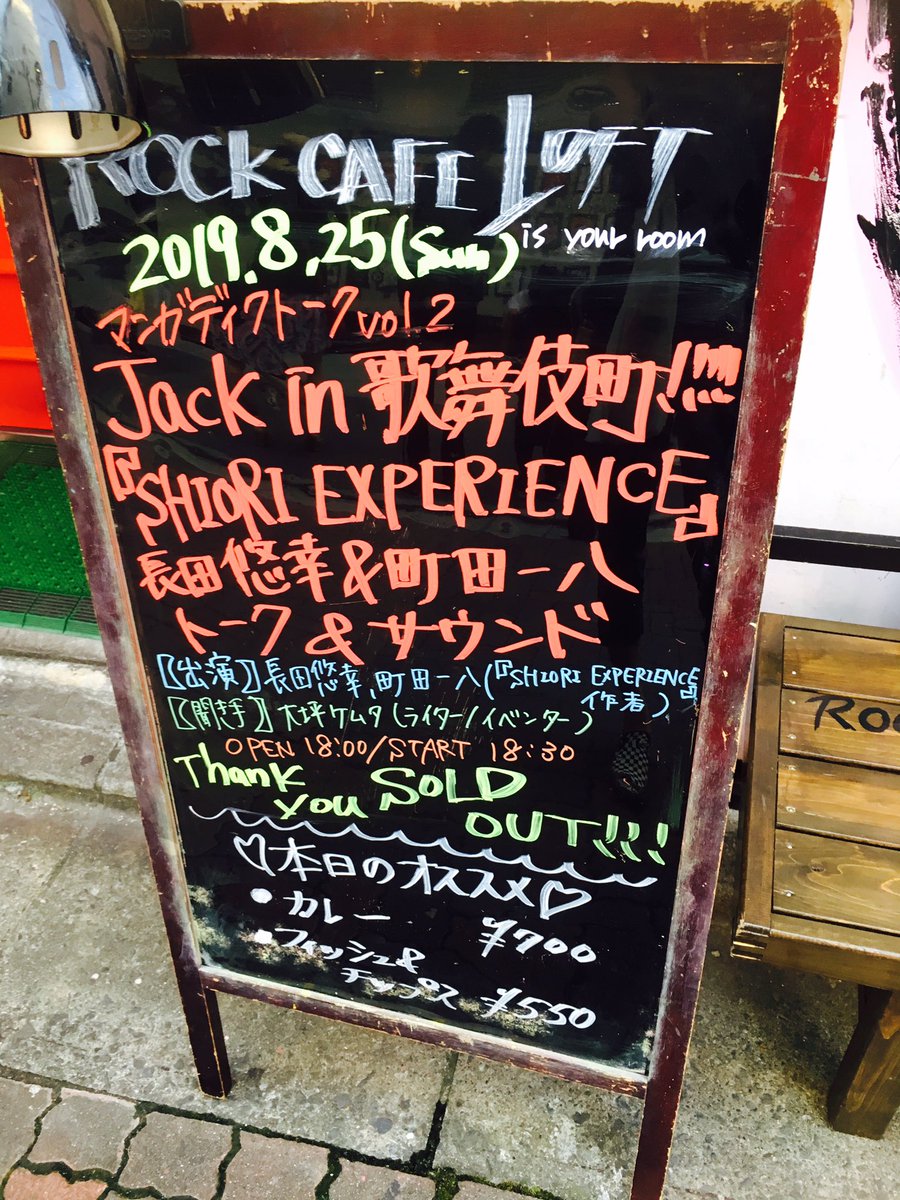 ROCK CAFE LOFT
is your room
2019.8.25(Sun)
マンガディクトークvol2
Jack in 歌舞伎町!!!!!
『SHIORI EXPERIENCE』
長田悠幸&町田一八
トーク&サウンド
【出演】長田悠幸、町田一八(『SHIORI EXPERIENCE』
作者)
【聞き手】大坪ケムタ(ライター/イベンター)
OPEN 18:00/START 18:30
Thank you SOLD
OUT!!!
♡本日のオススメ♡
•カレー ¥700
•フィッシュ&
チップス ¥550